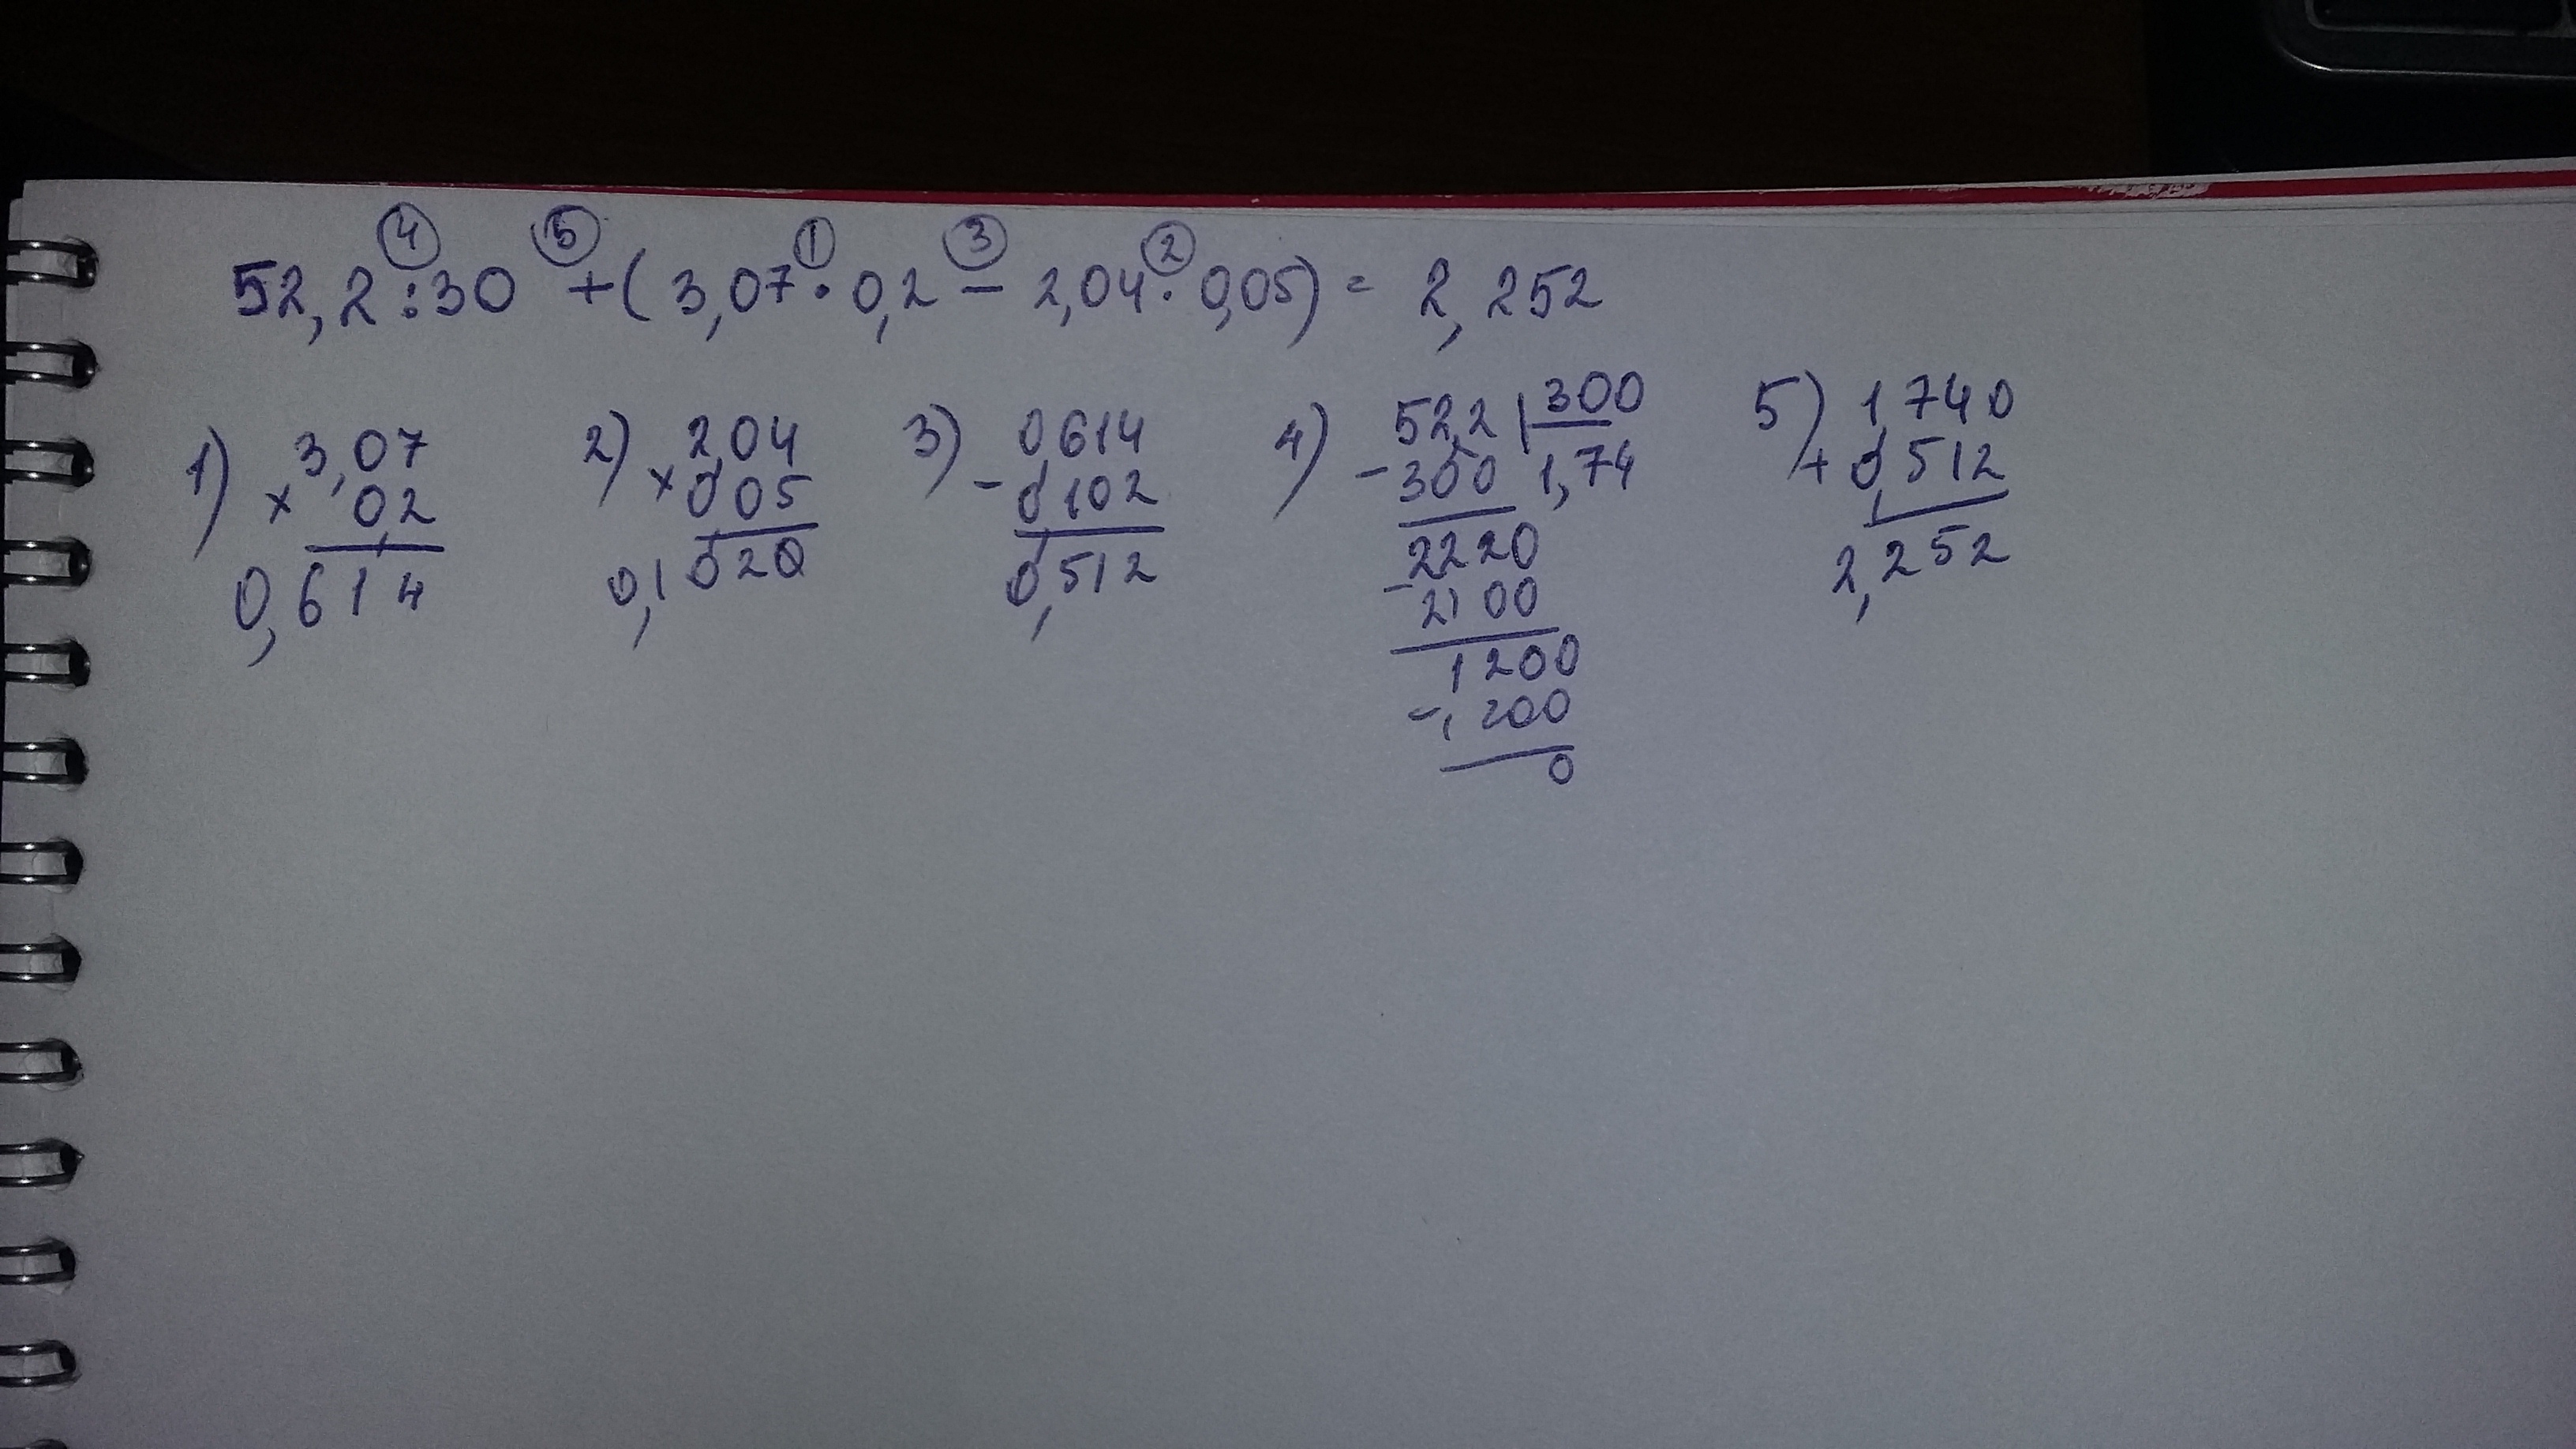 ④ ⑤ ① ③ ②
52,2:30 + (3,07 · 0,2 − 2,04 · 0,05) = 2,252
1) 3,07
× 0,2
0,614
2) 2,04
× 0,05
0,1020
3) 0,614
- 0,102
0,512
4) 52,2 | 300
- 300 1,74
2220
- 2100
1200
- 1200
0
5) 1,740
+ 0,512
2,252